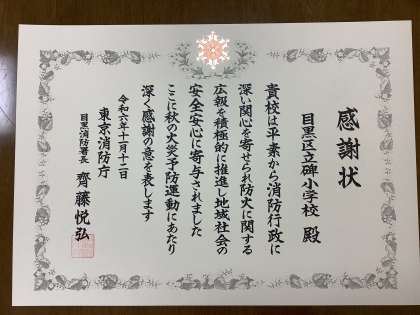 感謝状
目黒区立碑小学校 殿
貴校は平素から消防行政に
深い関心を寄せられ防火に関する
広報を積極的に推進し地域社会の
安全安心に寄与されました
ここに秋の火災予防運動にあたり
深く感謝の意を表します
令和六年十一月十二日
東京消防庁
目黒消防署長 齊藤悦弘